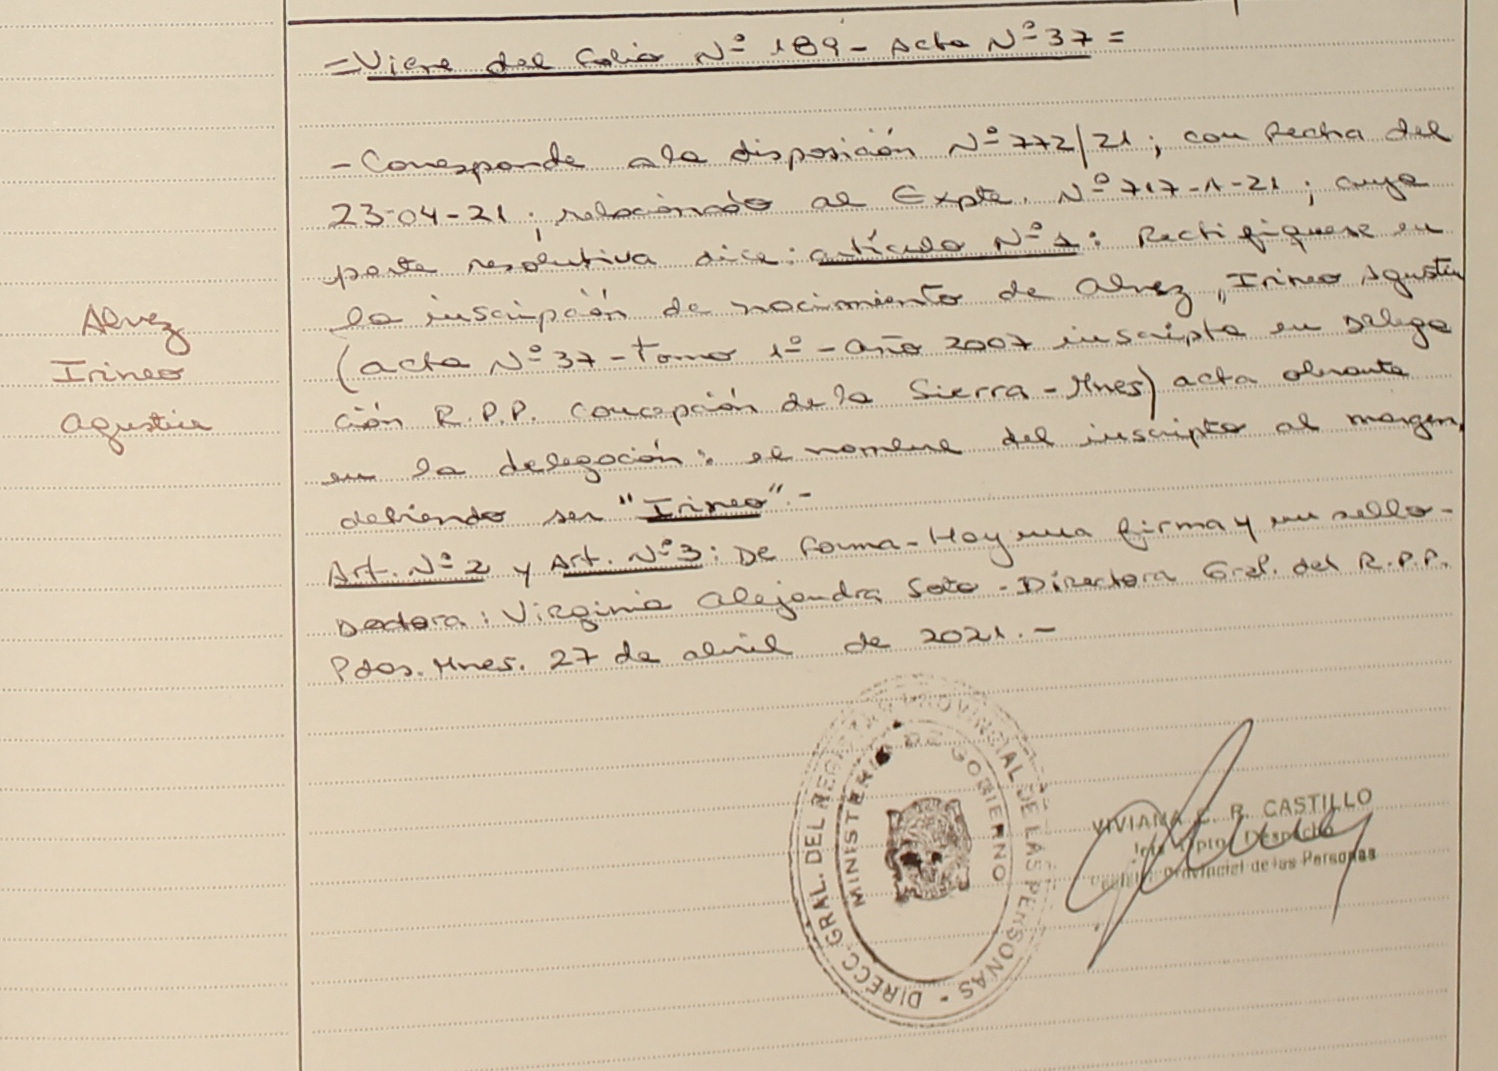 =Viene del Folio Nº 189 - Acta Nº 37=
-Corresponde a la disposición Nº 772/21; con fecha del
23-04-21; relacionado al Expte. Nº 717-A-21; cuya
parte resolutiva dice: artículo Nº 1: Rectifíquese en
la inscripción de nacimiento de Alvez, Irineo Agustín
(acta Nº 37 - Tomo 1º - año 2007 inscripta en Delega
ción R.P.P. Concepción de la Sierra - Mnes) acta obrante
en la delegación: el nombre del inscripto al margen,
debiendo ser "Irineo".-
Art. Nº 2 y Art. Nº 3: De forma - Hay una firma y un sello -
Doctora: Virginia Alejandra Soto - Directora Gral. del R.P.P.
Pdas. Mnes. 27 de abril de 2021.-
Alvez
Irineo
Agustín
DIRECC. GRAL. DEL REGISTRO PROVINCIAL DE LAS PERSONAS -
MINISTERIO DE GOBIERNO
VIVIANA C. R. CASTILLO
Jefa Dpto. Despacho
Provincial de las Personas